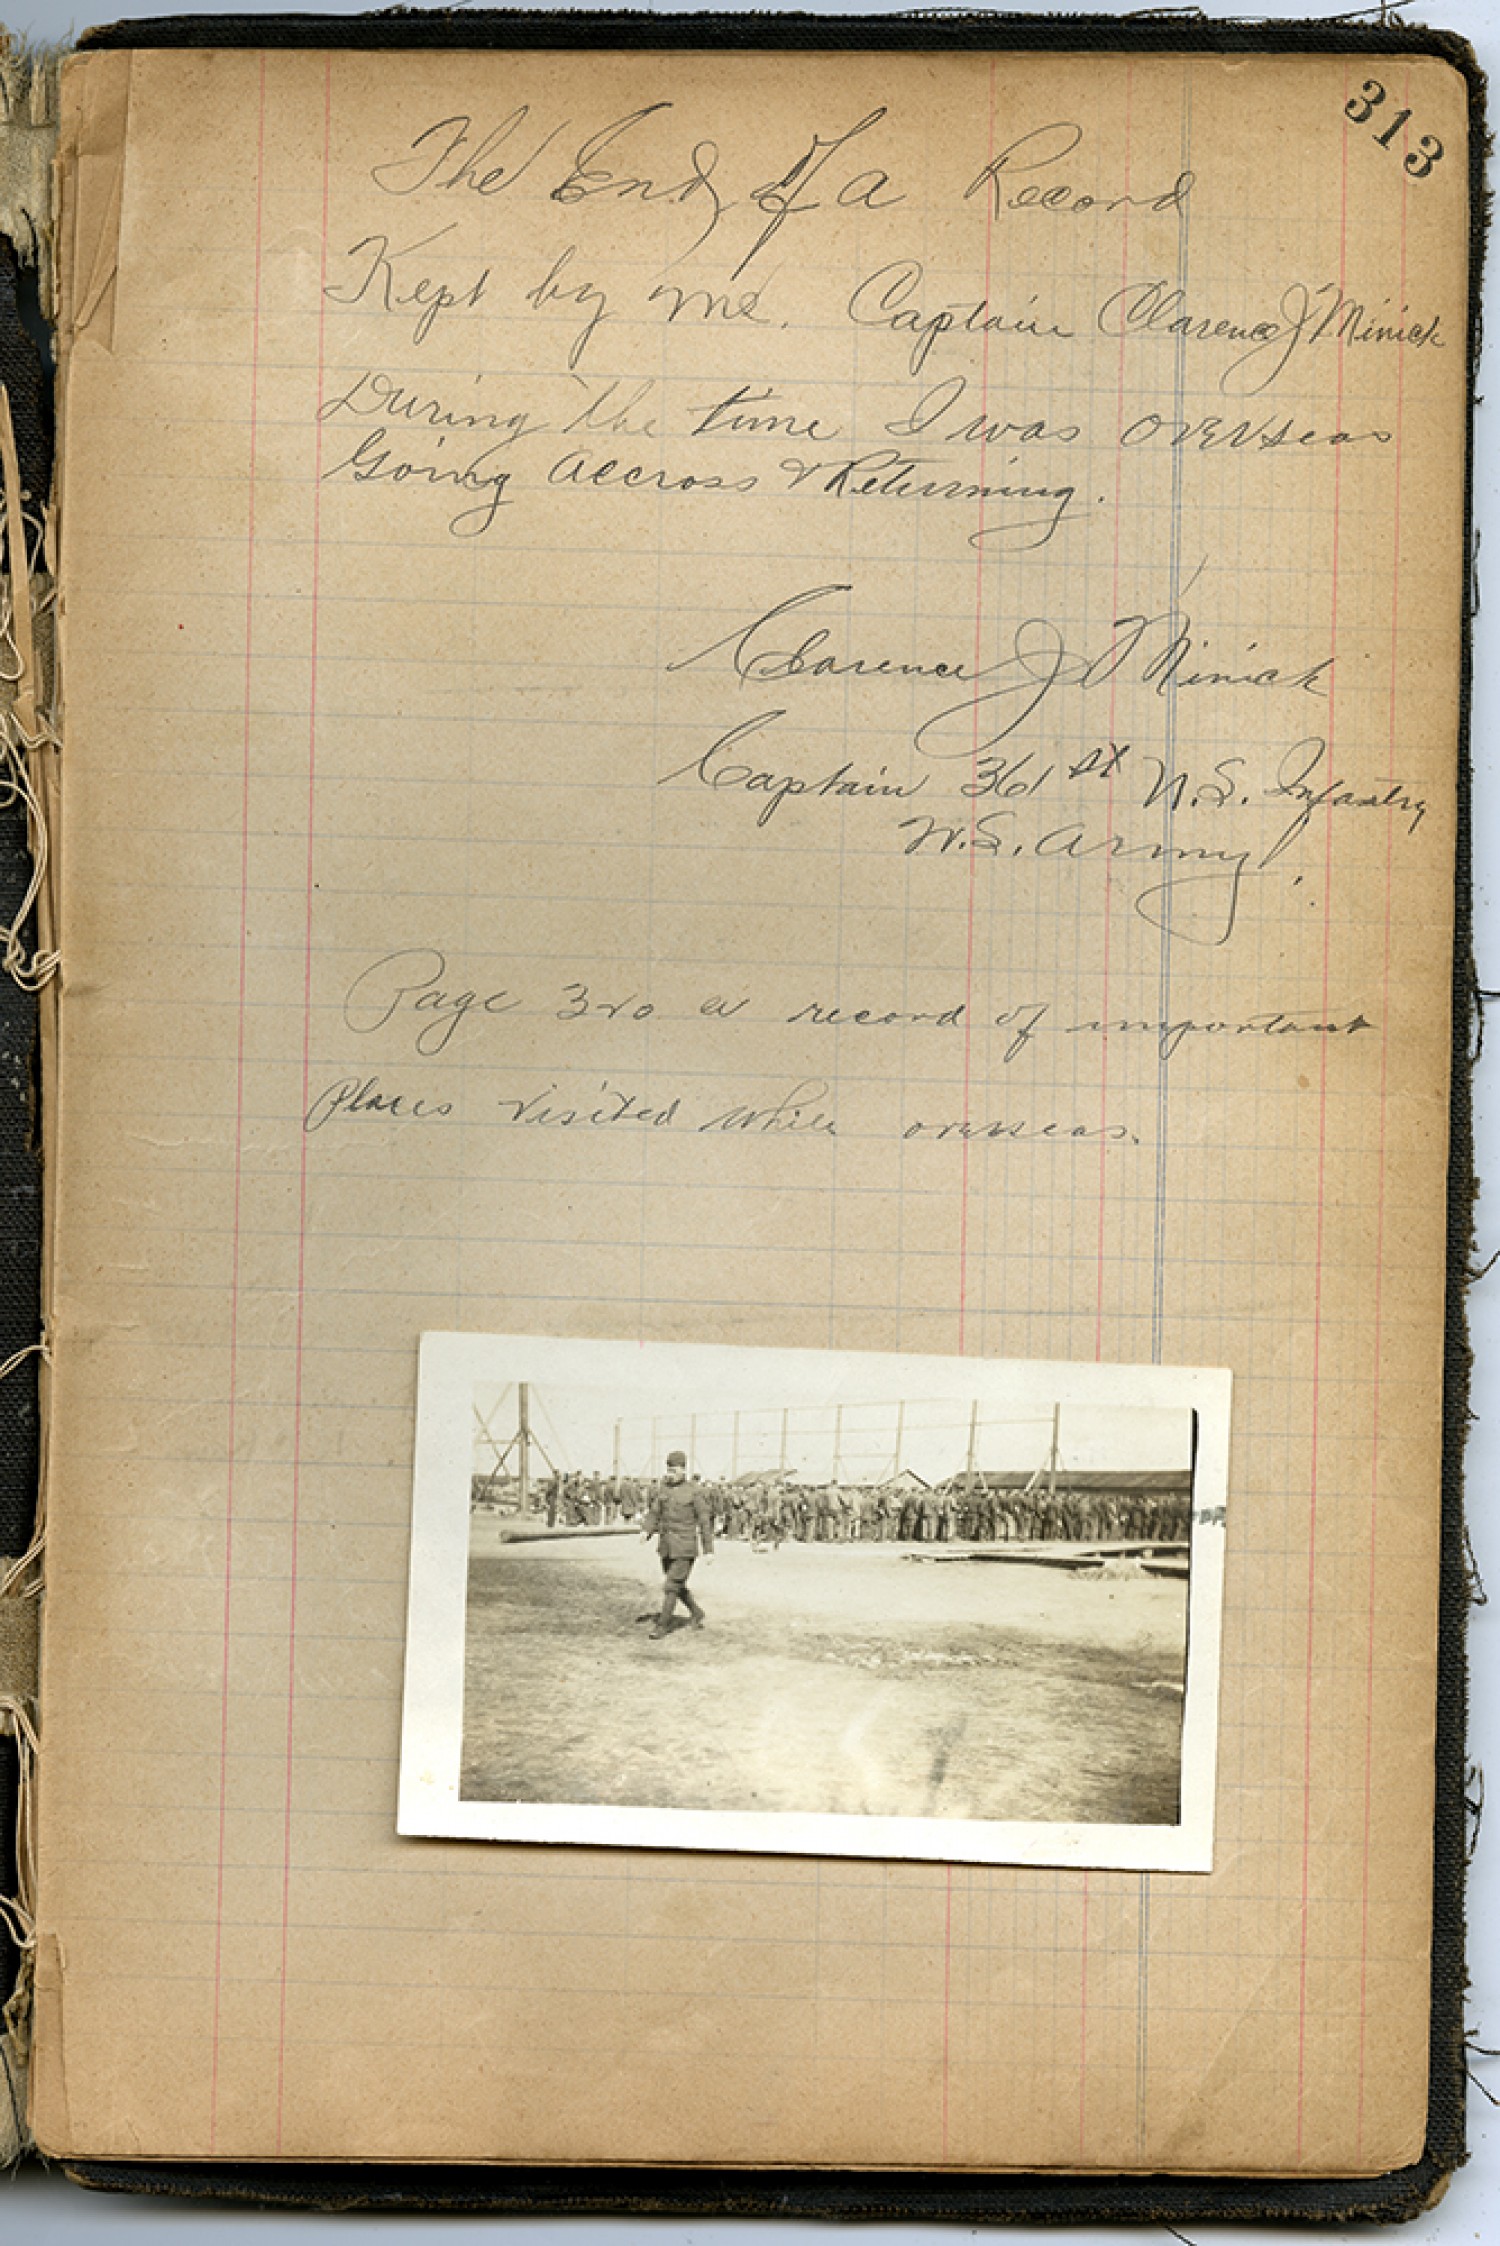 313
The End of a Record
Kept by me. Captain Clarence J Minick
During the time I was overseas
Going accross & Returning.
Clarence J Minick
Captain 361st U.S. Infantry
U.S. Army.
Page 320 a record of important
places visited while overseas.